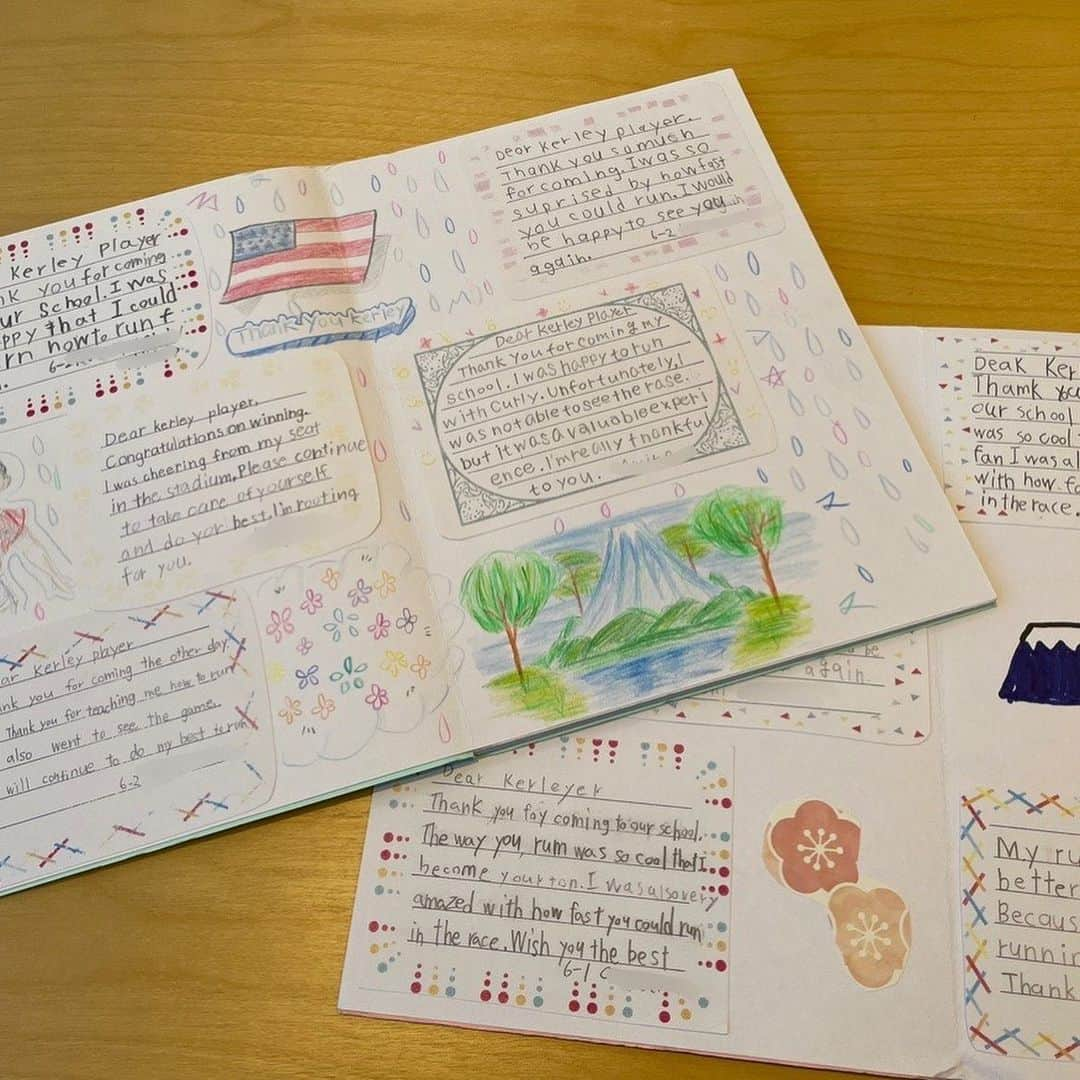 Kerley Player
nk you for coming
ur school. I was
ppy that I could
rn how to run f
thank you kerley
Dear Kerley player.
Thank you so much
for coming. I was so
suprised by how fast
you could run. I would
be happy to see you again
6-2
again.
Dear Kerley Player
Thank you for coming my
school. I was happy to run
with Curly. Unfortunately, I
was not able to see the rase.
but it was a valuable experi
ence. I'm really thankfu
to you.
Dear kerley player,
Congratulations on winning.
I was cheering from my seat
in the stadium. Please continue
to take care of yourself
and do your best. I'm rooting
for you.
ar Kerley player
ank you for coming the other day.
Thank you for teaching me how to run
also went to see the game.
will continue to do my best to run
6-2
again.
Dear Kerleyer
Thank you foy coming to our school.
The way you rum was so cool that I
become your fon. I was also very
amazed with how fast you could run
in the race. Wish you the best
6-1
Dear Ker
Thank you
our school
was so cool
fan I was al
with how fa
in the race.
My ru
better
Becaus
runnin
Thank